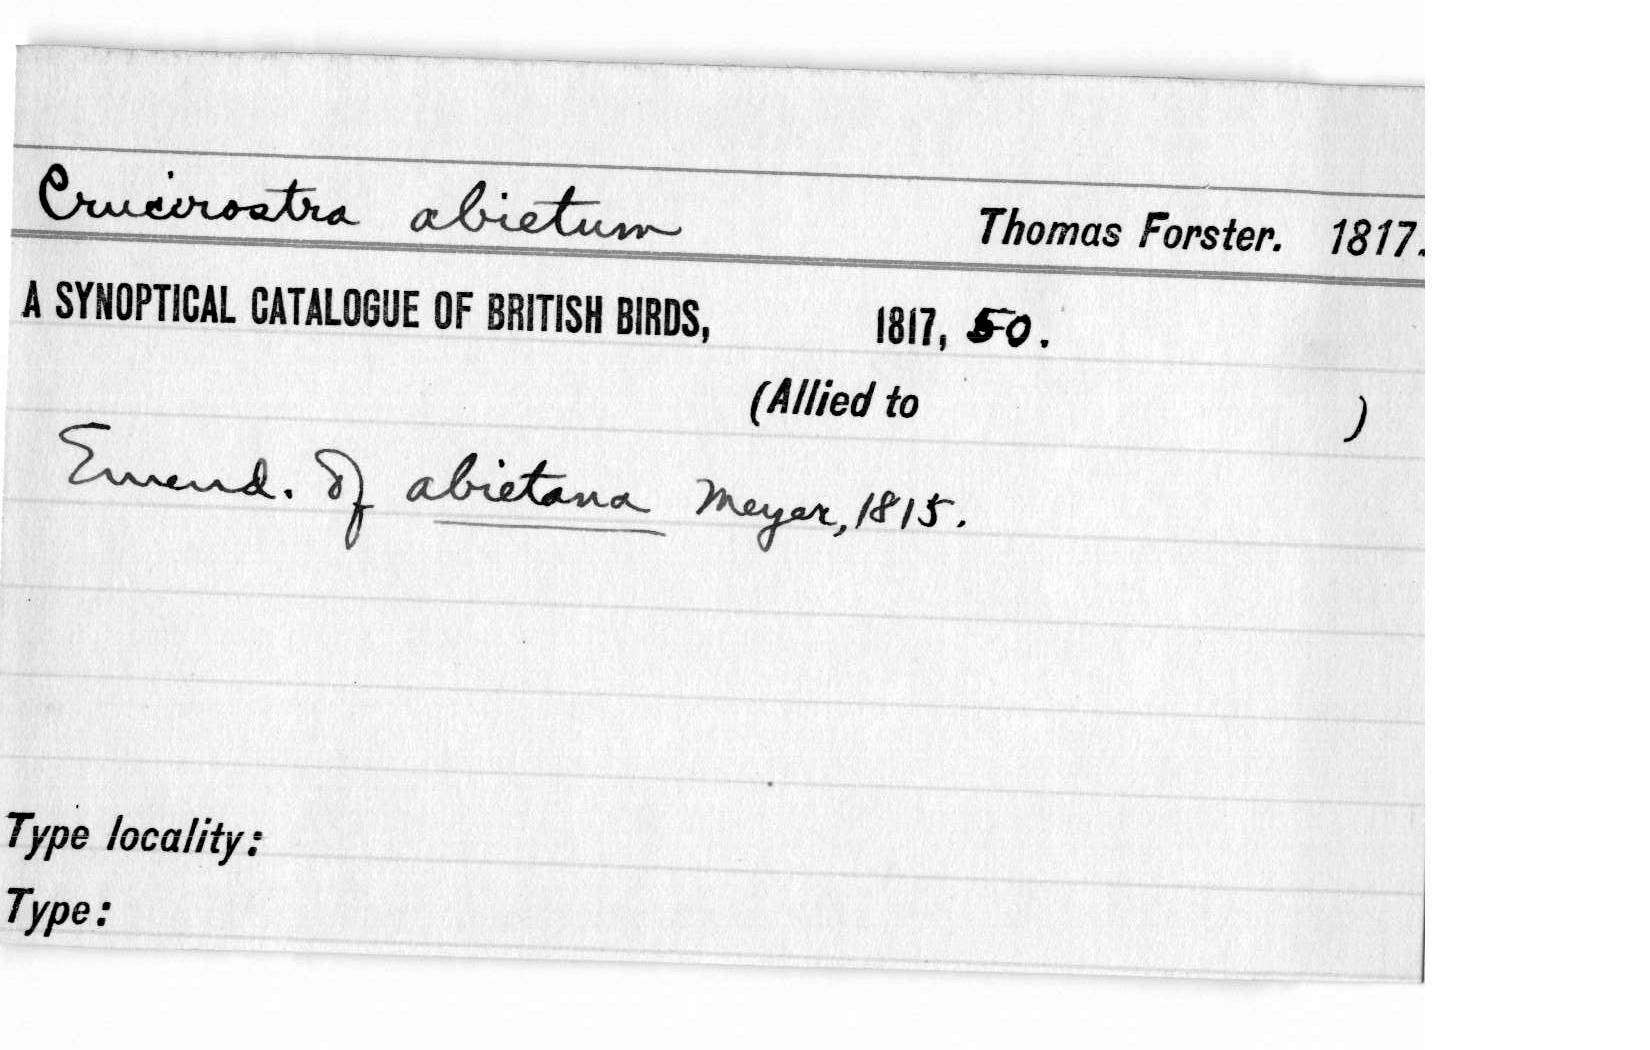 Crucirostra abietum Thomas Forster. 1817.
A SYNOPTICAL CATALOGUE OF BRITISH BIRDS, 1817, 50.
(Allied to )
Emend. of abietana Meyer, 1815.
Type locality:
Type: